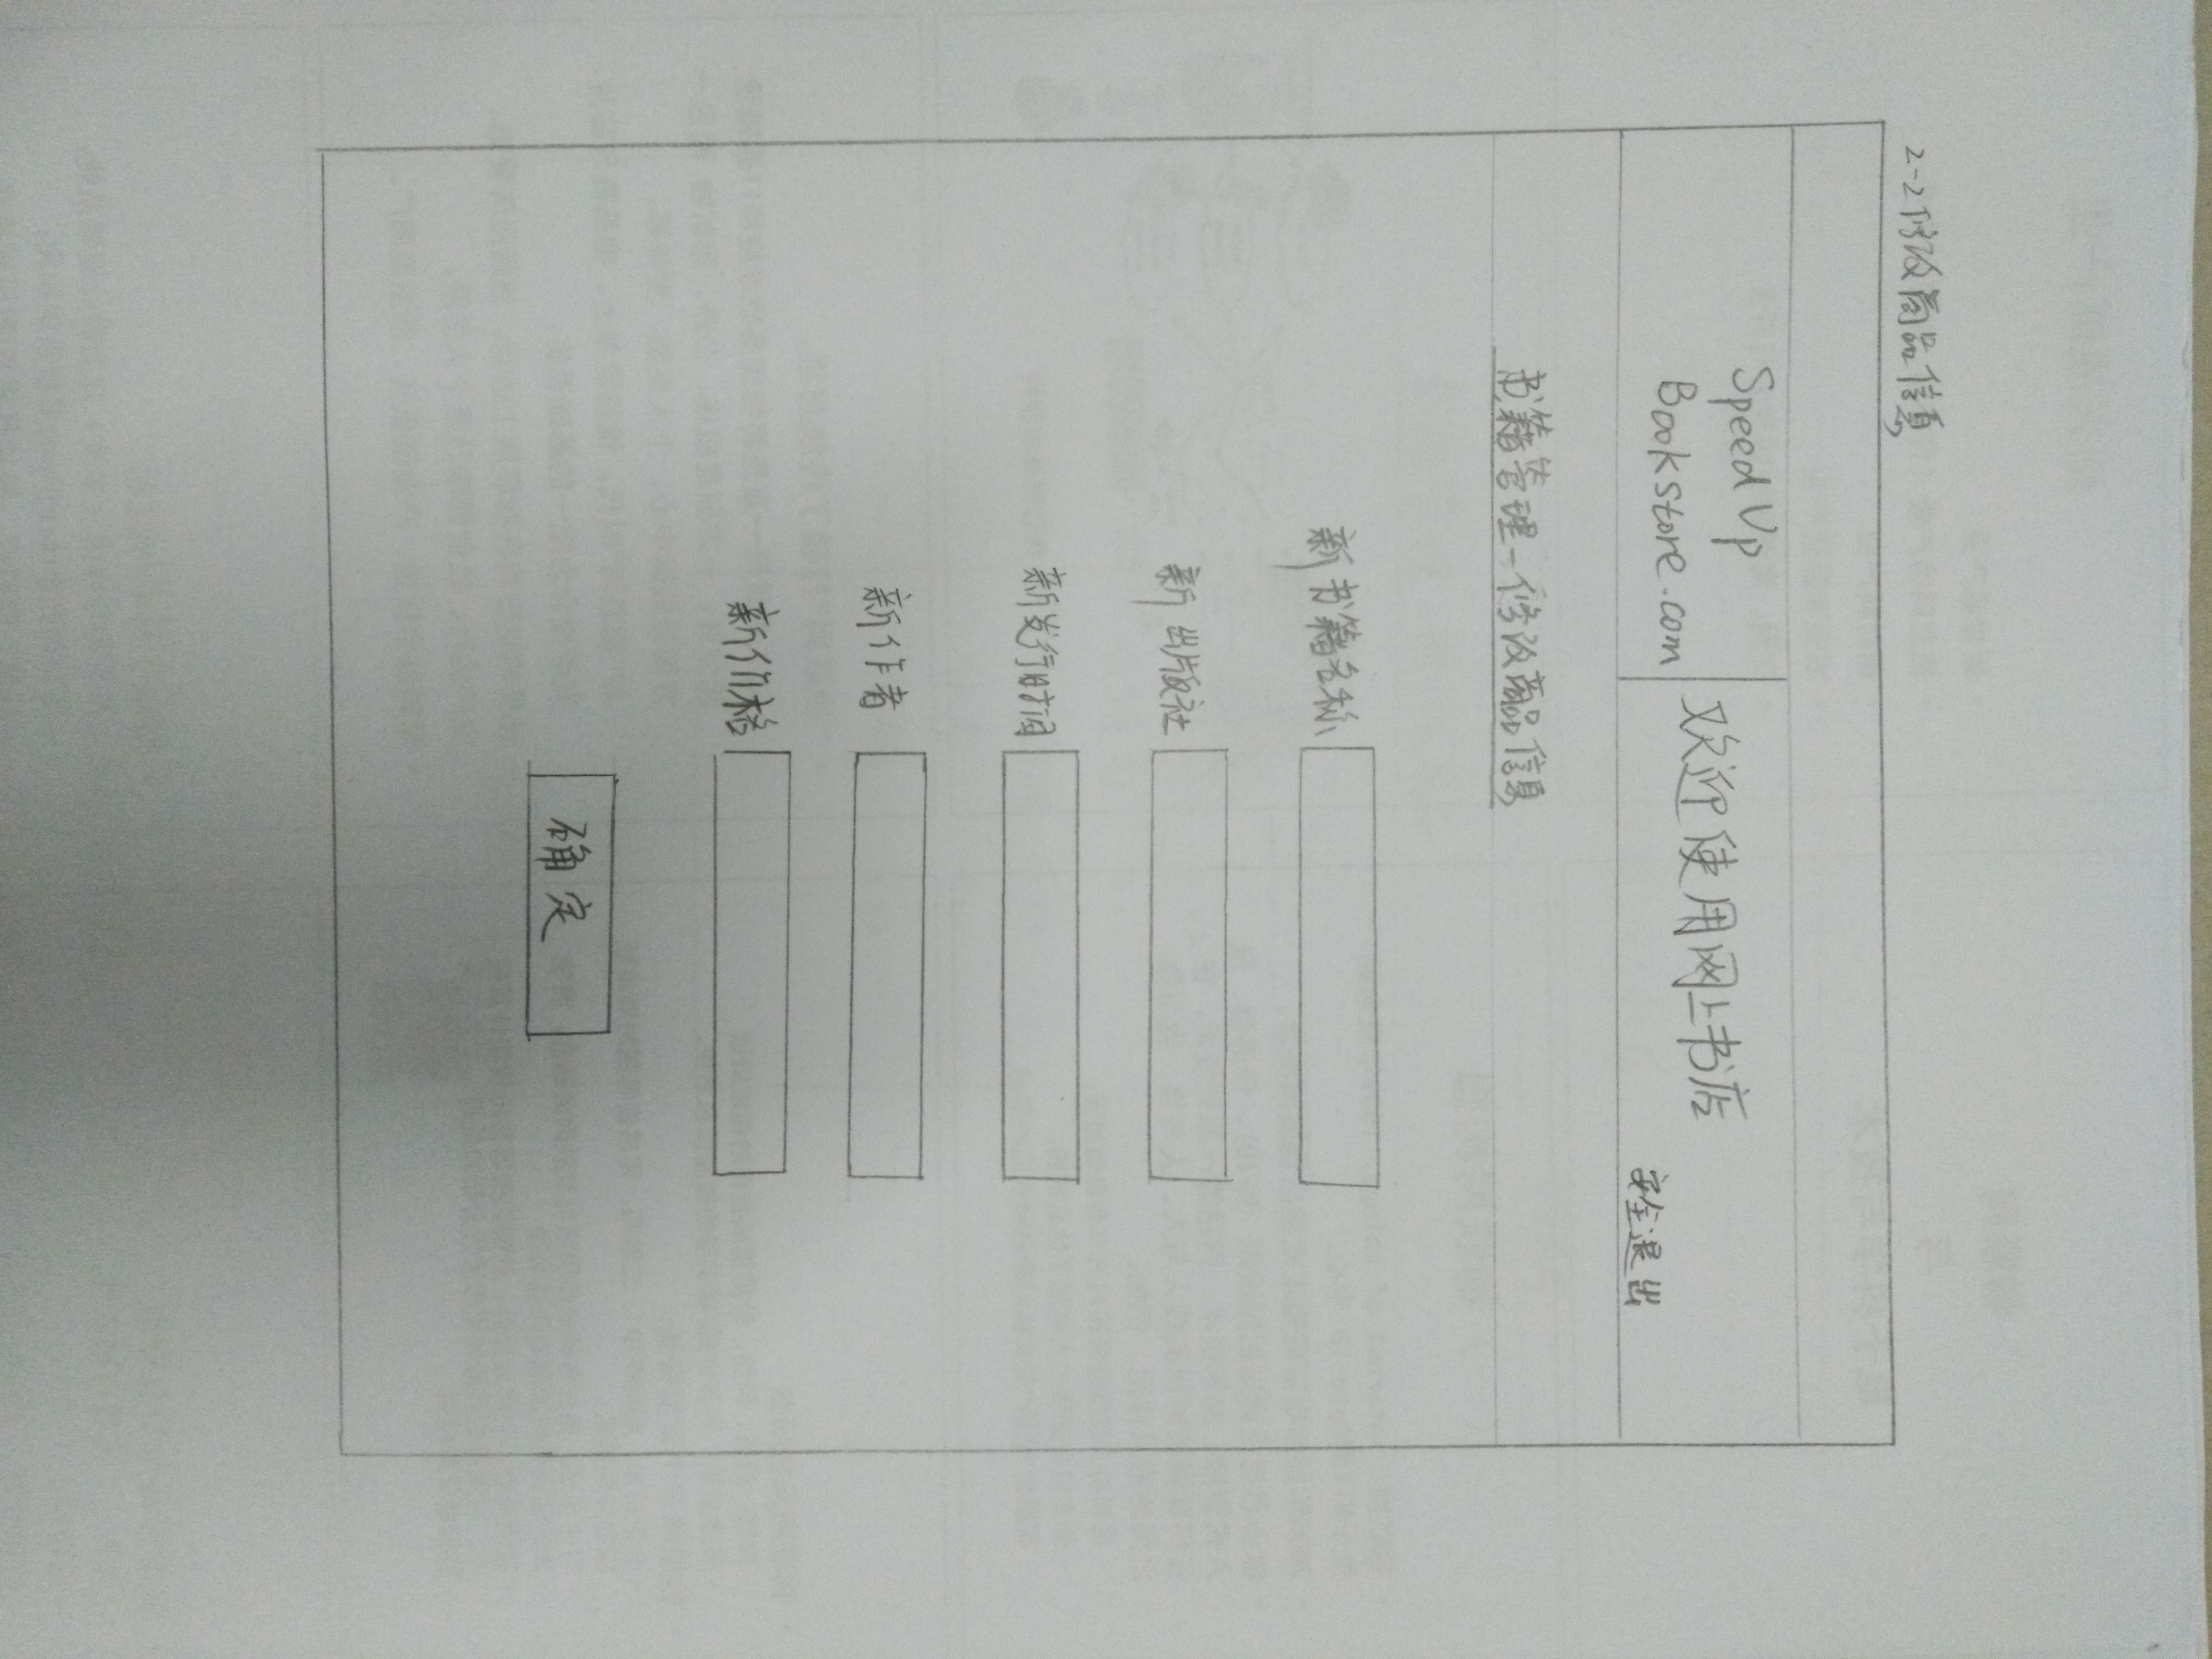 2-2修改商品信息
Speed Up
Bookstore.com
欢迎使用网上书店
安全退出
书籍管理-修改商品信息
新书籍名称
新出版社
新发行时间
新作者
新价格
确定